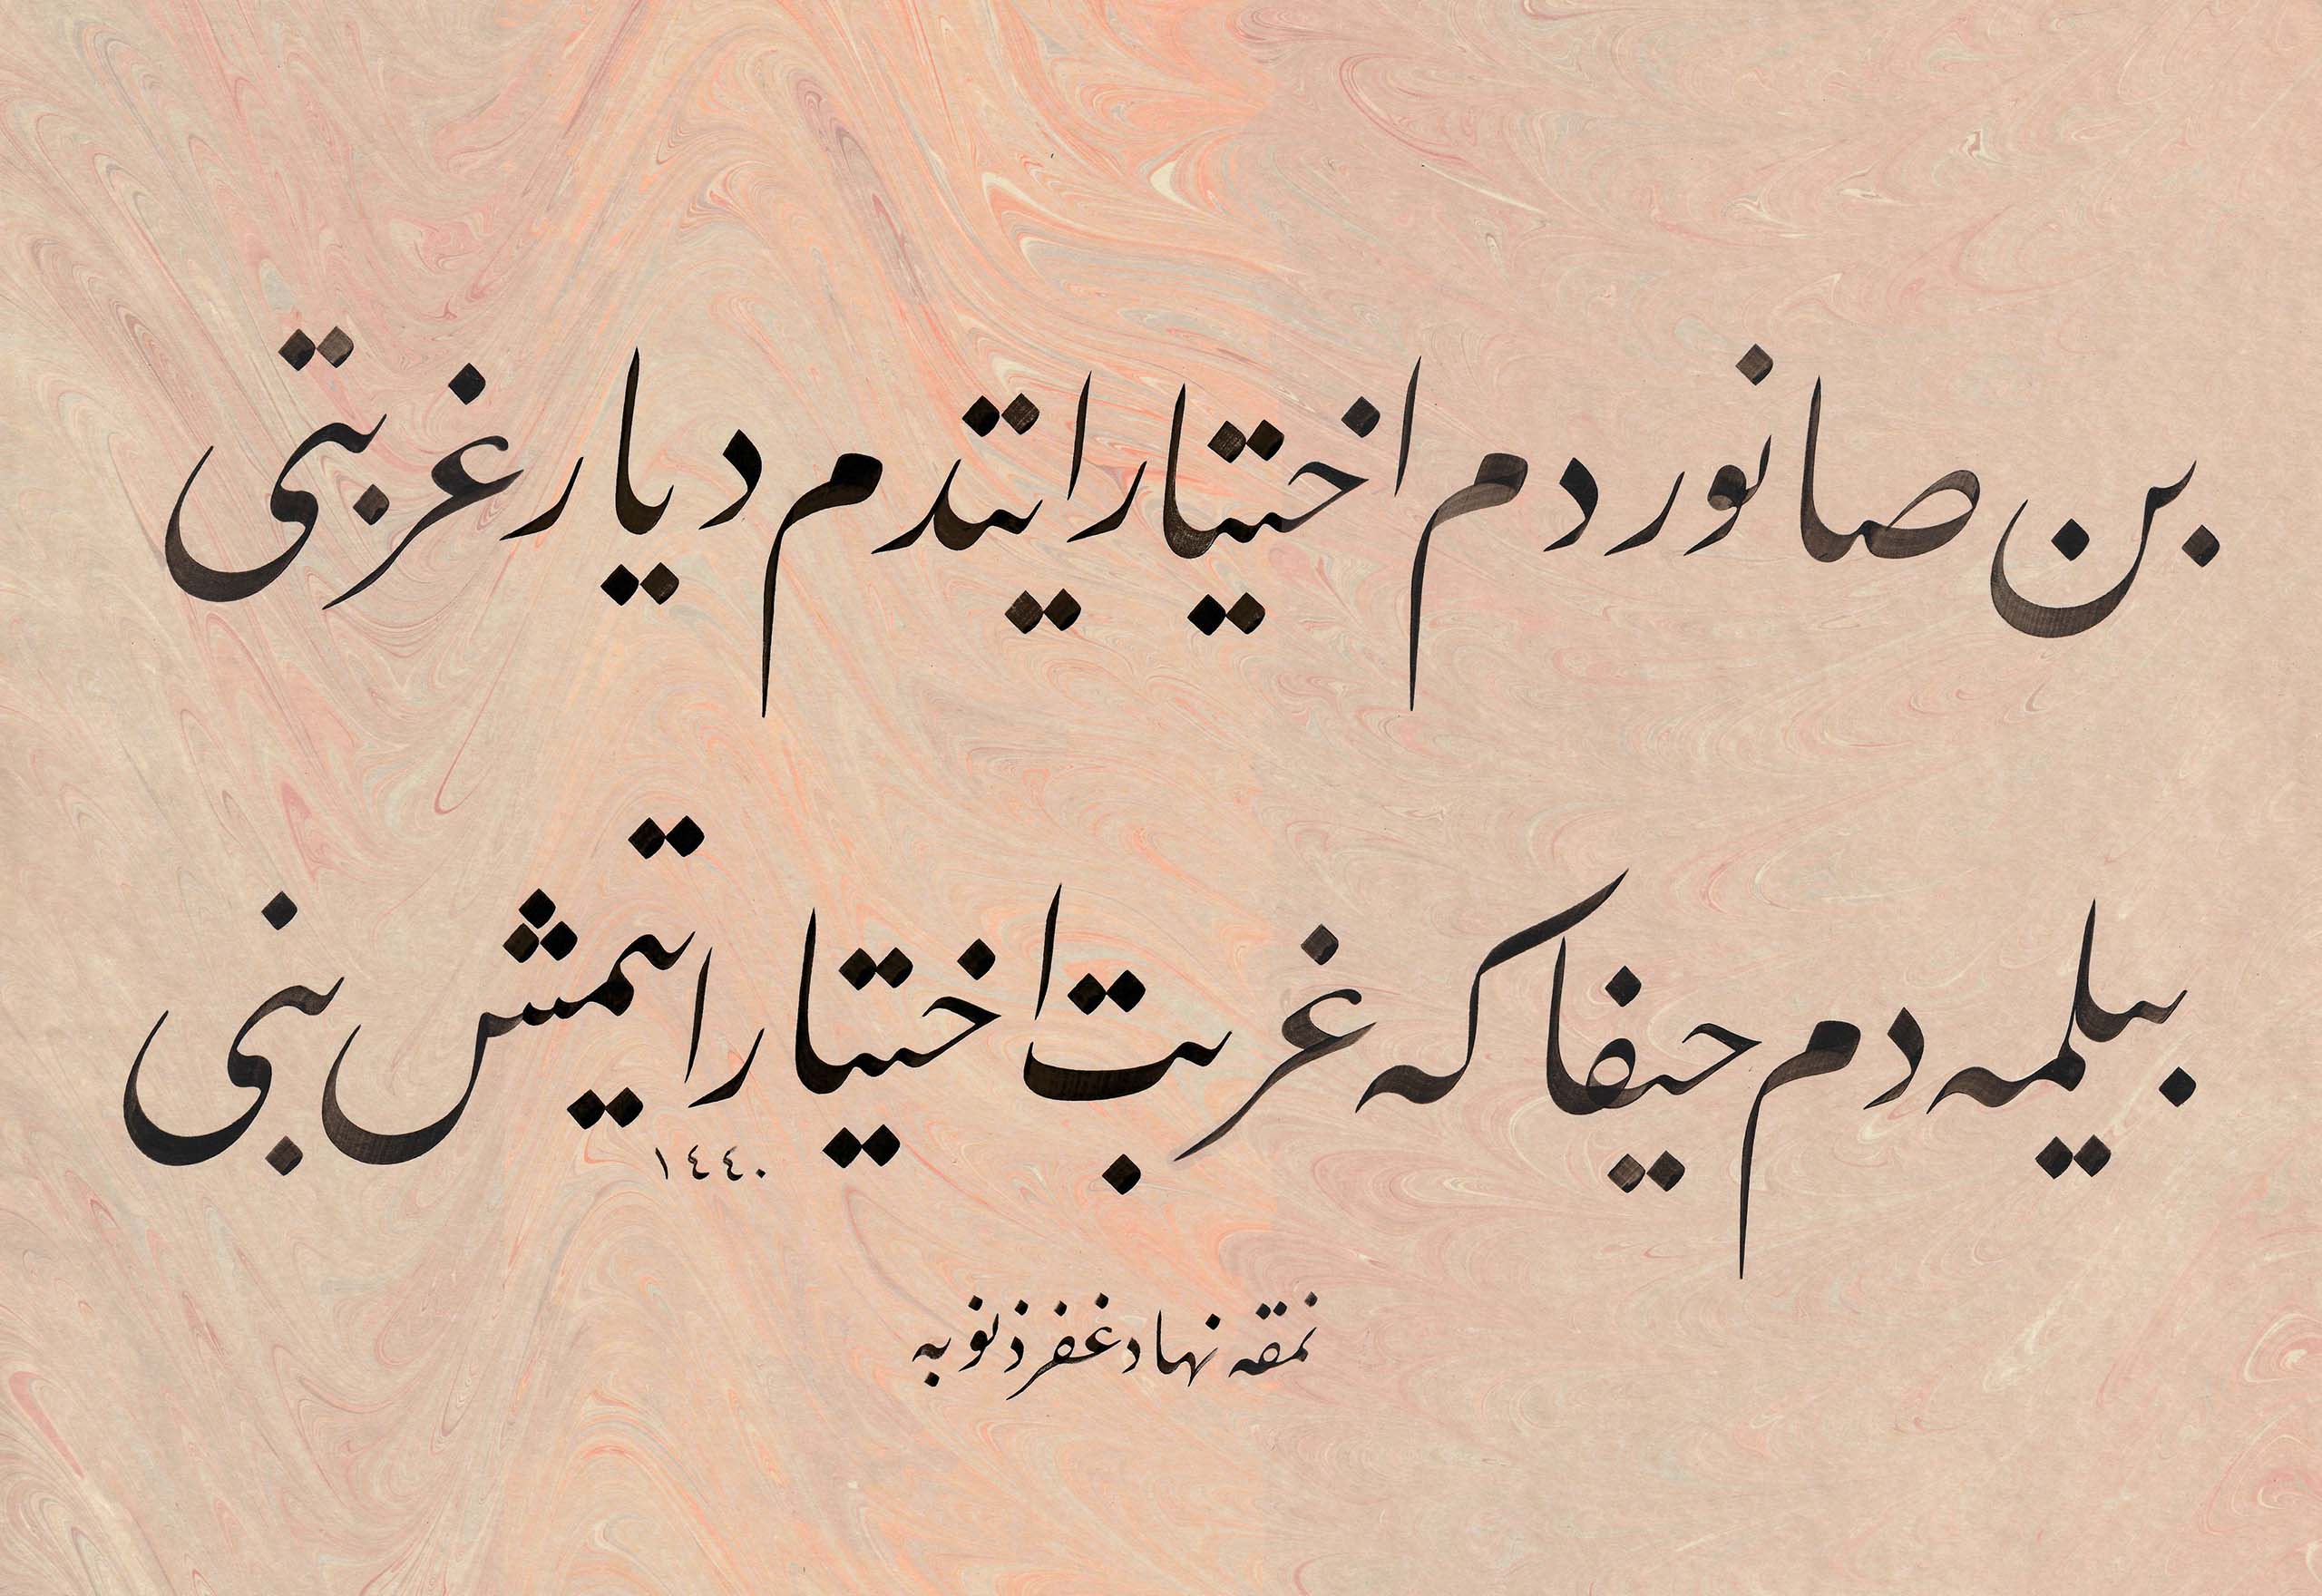 بن صانوردم اختيار ايتدم ديار غربتى
بيلميه دم حيفا كه غربت اختيار ايتمش بنى
١٤٤٠
نمقه نهاد غفر ذنوبه